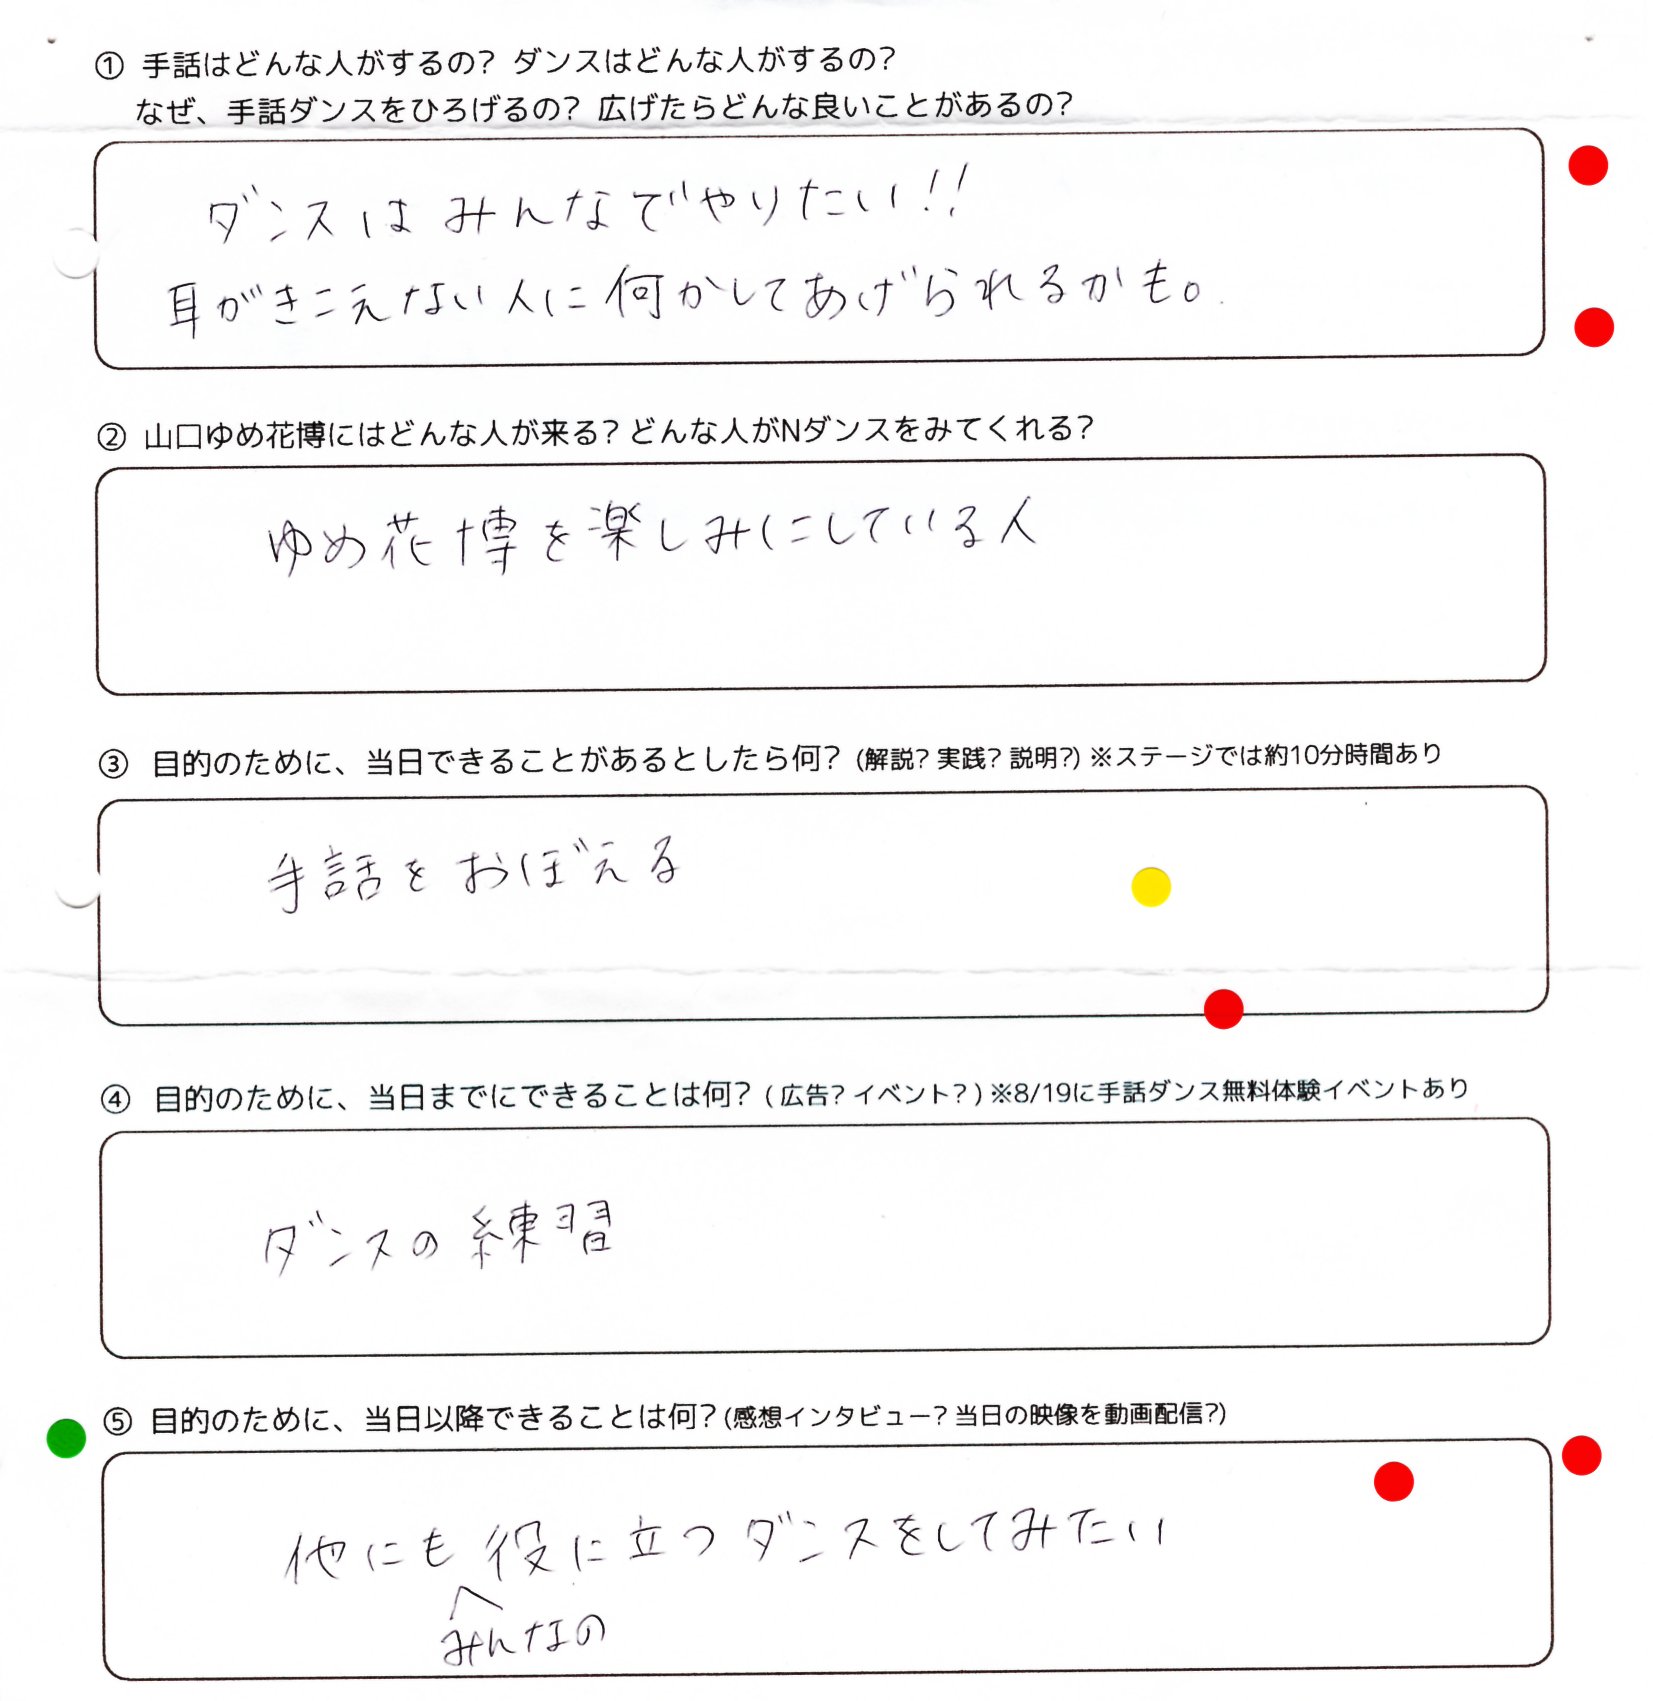 ① 手話はどんな人がするの? ダンスはどんな人がするの?
なぜ、手話ダンスをひろげるの? 広げたらどんな良いことがあるの?
ダンスはみんなでやりたい!!
耳がきこえない人に何かしてあげられるかも。
② 山口ゆめ花博にはどんな人が来る? どんな人がNダンスをみてくれる?
ゆめ花博を楽しみにしている人
③ 目的のために、当日できることがあるとしたら何? (解説? 実践? 説明?) ※ステージでは約10分時間あり
手話をおぼえる
④ 目的のために、当日までにできることは何? ( 広告? イベント? ) ※8/19に手話ダンス無料体験イベントあり
ダンスの練習
⑤ 目的のために、当日以降できることは何? (感想インタビュー? 当日の映像を動画配信?)
他にも役に立つダンスをしてみたい
みんなの